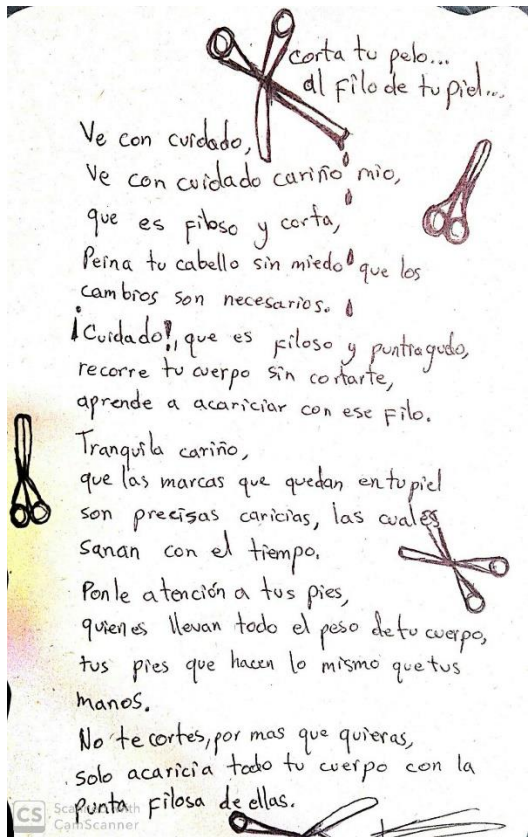 corta tu pelo...
al filo de tu piel...
Ve con cuidado,
Ve con cuidado cariño mio,
que es filoso y corta,
Peina tu cabello sin miedo que los
cambios son necesarios.
¡Cuidado!, que es filoso y puntiagudo,
recorre tu cuerpo sin cortarte,
aprende a acariciar con ese filo.
Tranquila cariño,
que las marcas que quedan en tu piel
son precisas caricias, las cuales
sanan con el tiempo.
Ponle atención a tus pies,
quienes llevan todo el peso de tu cuerpo,
tus pies que hacen lo mismo que tus
manos.
No te cortes, por mas que quieras,
solo acaricia todo tu cuerpo con la
punta filosa de ellas.
CS
CamScanner